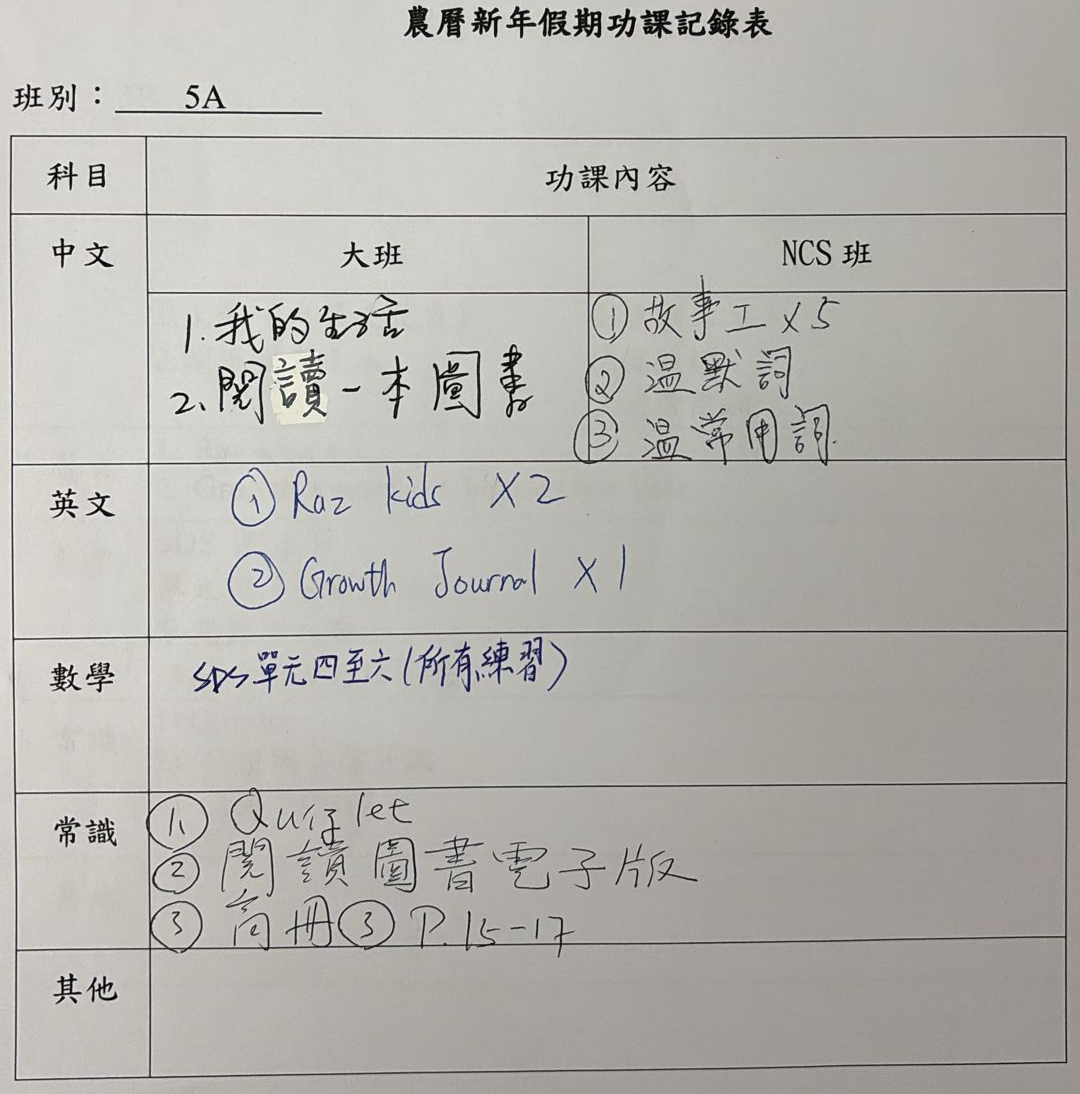 農曆新年假期功課記錄表
班別： 5A
科目 功課內容
中文 大班 NCS 班
1. 我的生活
2. 閱讀一本圖書
① 故事工 x 5
② 温默詞
③ 温常用詞.
英文 ① Raz kids X2
② Growth Journal X 1
數學 SDS 單元四至六(所有練習)
常識 ① Quizlet
② 閱讀圖書電子版
③ 高冊③ P.15-17
其他